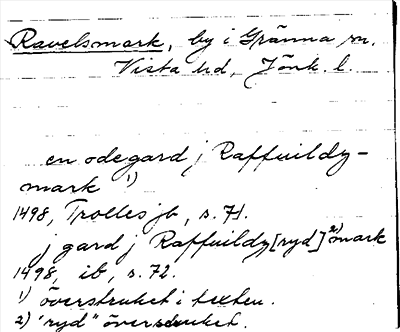 Ravelsmark, by i Gränna sn.
Vista hd, Jönk. l.
en odegard j Raffuildz-
mark 1)
1498, Trolles jb, s. 71.
j gard j Raffuildz[ryd] 2) mark
1498, ib, s. 72.
1) överstruket i texten.
2) "ryd" överstruket.